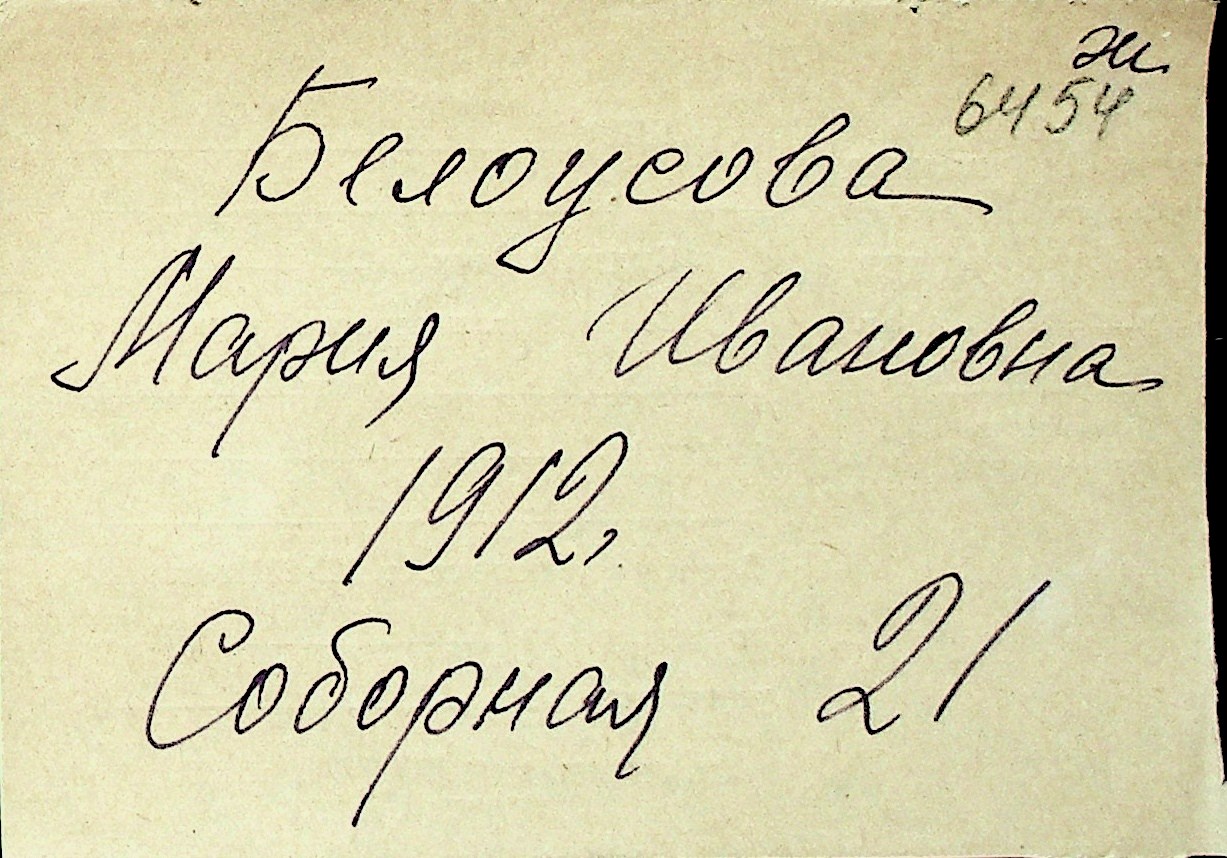 ж
6454
Белоусова
Мария Ивановна
1912г
Соборная 21